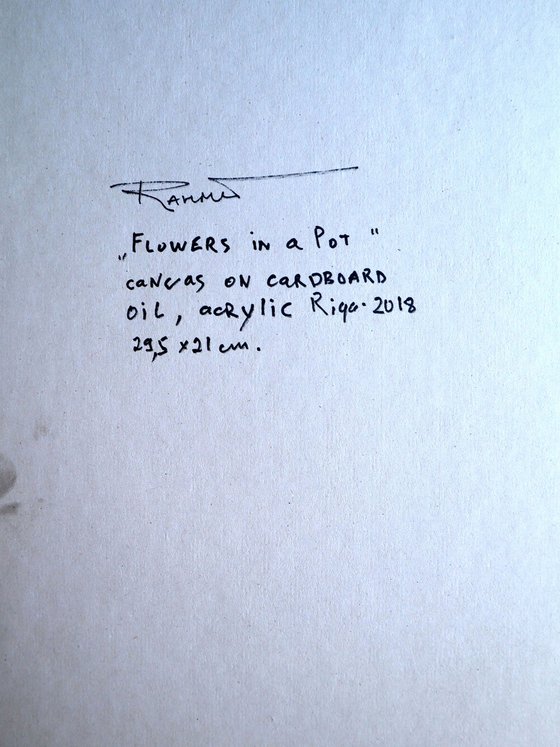 „FLOWERS IN a POT"
canvas ON CaRDBOARD
OiL, acRylic Riga. 2018
29,5 x 21 cm.